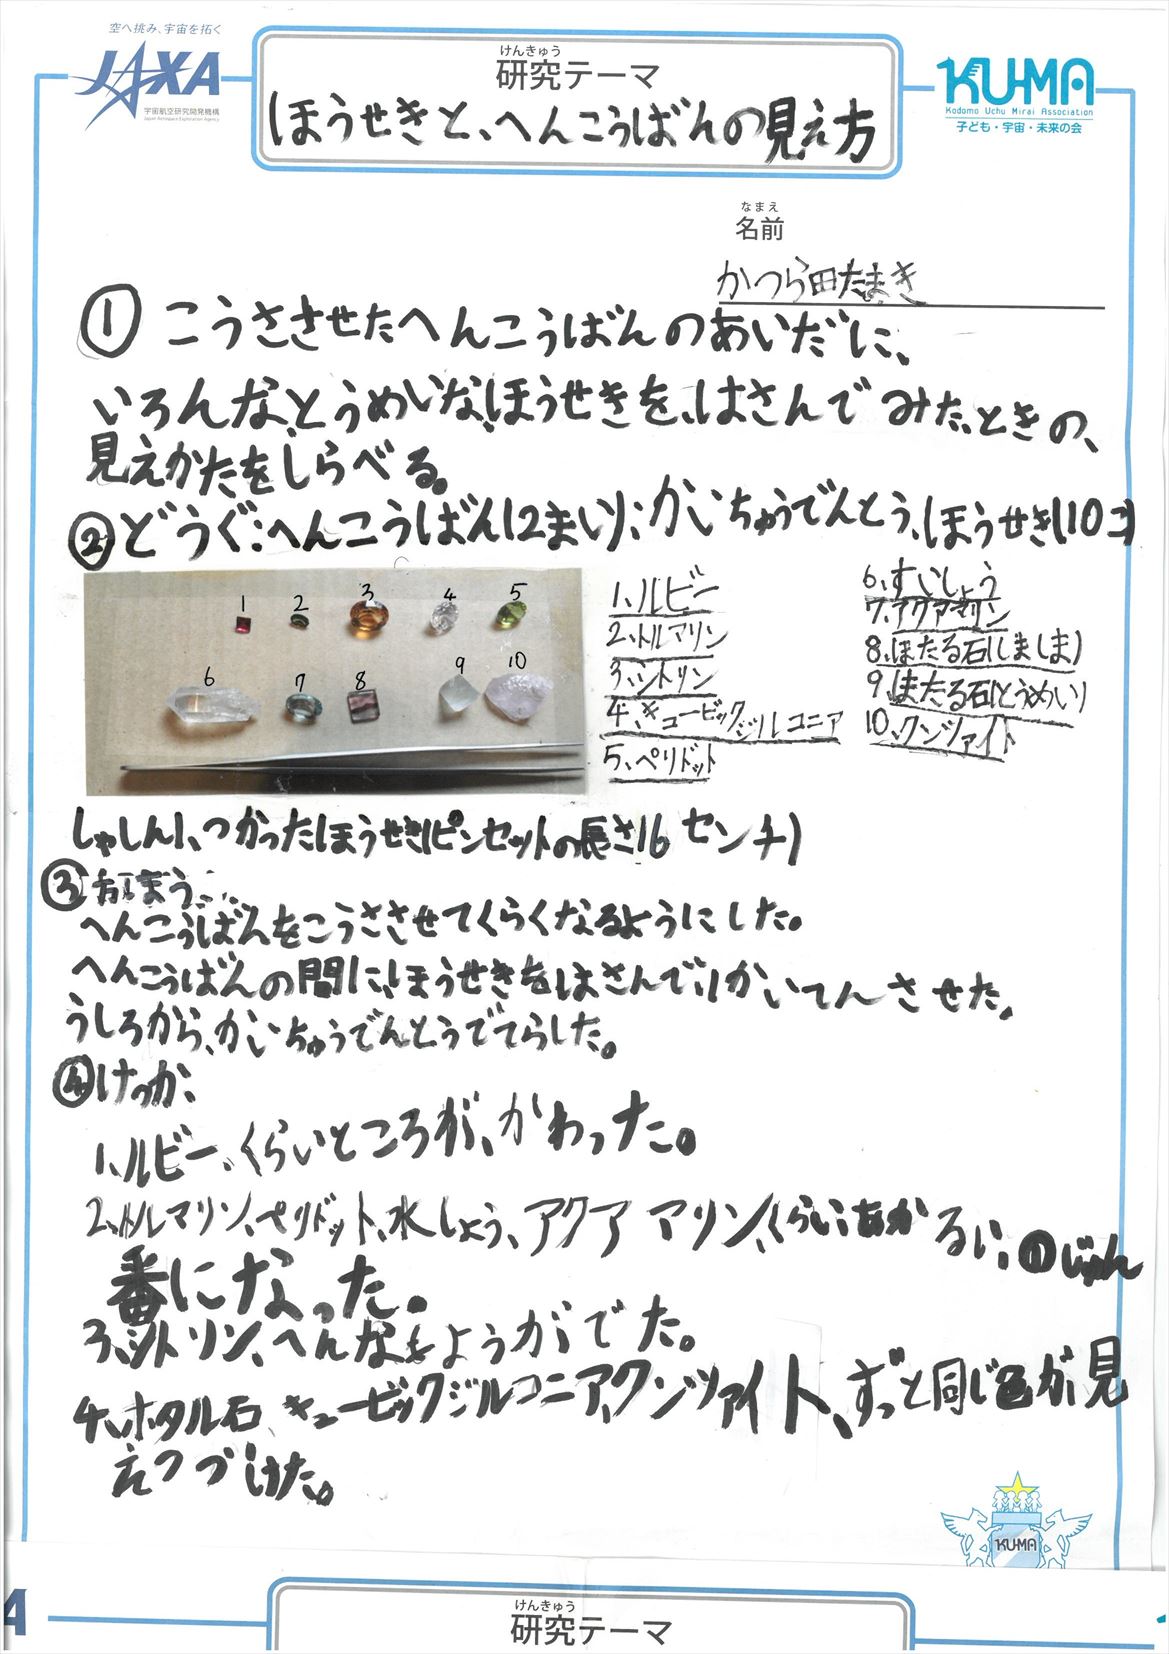 空へ挑み、宇宙を拓く
JAXA
宇宙航空研究開発機構
Japan Aerospace Exploration Agency
けんきゅう
研究テーマ
ほうせきと、へんこうばんの見え方
KU-MA
Kodomo Uchu Mirai Association
子ども・宇宙・未来の会
なまえ
名前
かつら田たまき
① こうささせたへんこうばんのあいだに、
いろんなとうめいなほうせきを、はさんでみた、ときの、
見えかたをしらべる。
②どうぐ:へんこうばん(2まい)、かいちゅうでんとう、ほうせき(10こ)
1 2 3 4 5
6 7 8 9 10
1、ルビー
2、トルマリン
3、シトリン
4、キュービックジルコニア
5、ペリドット
6、すいしょう
7、アクアマリン
8、ほたる石(しましま)
9、ほたる石(とうめい)
10、クンツァイト
しゃしん1、つかったほうせき(ピンセットの長さ16センチ)
③方ほう
へんこうばんをこうささせてくらくなるようにした。
へんこうばんの間に、ほうせきをはさんで、かいてんさせた。
うしろから、かいちゅうでんとうでてらした。
④けっか、
1、ルビー、くらいところが、かわった。
2、トルマリン、ペリドット、水しょう、アクアマリン、くらい、あかるい、のじゅん
番になった。
3、シトリン、へんなもようがでた。
4、ホタル石 キュービックジルコニア、クンツァイト、ずっと同じ色が見
えつづけた。
KU-MA
A
けんきゅう
研究テーマ